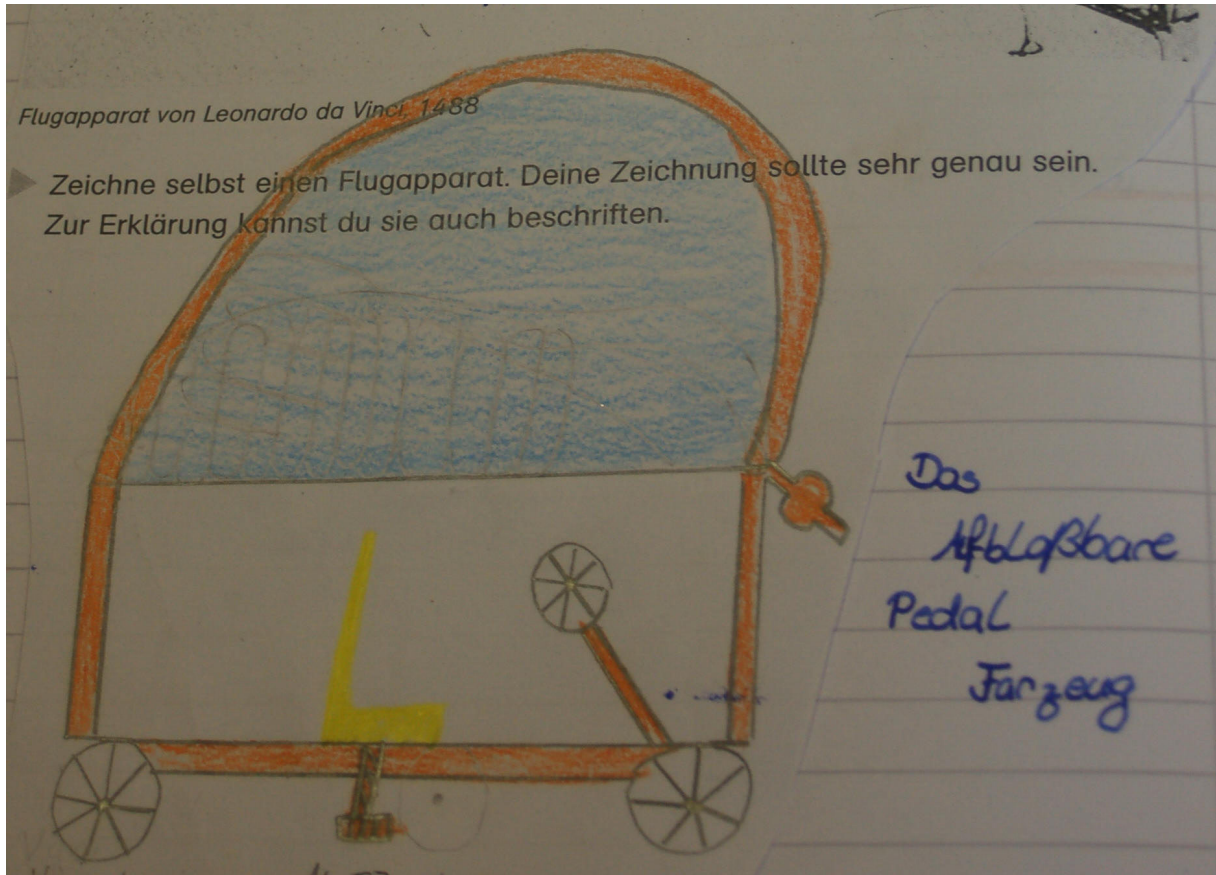 Flugapparat von Leonardo da Vinci, 1488
Zeichne selbst einen Flugapparat. Deine Zeichnung sollte sehr genau sein.
Zur Erklärung kannst du sie auch beschriften.
Das
Afblaßbare
Pedal
Farzeug